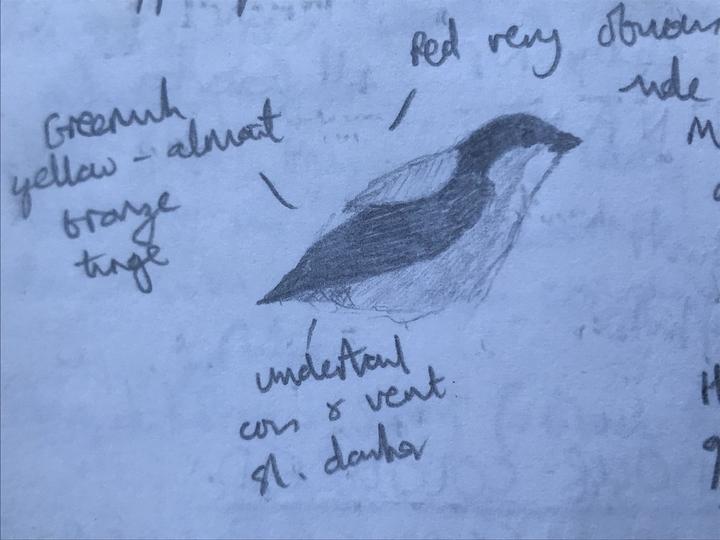 Red very obvious
side
Greenish
yellow - almost
bronze
tinge
undertail
covs & vent
sl. darker